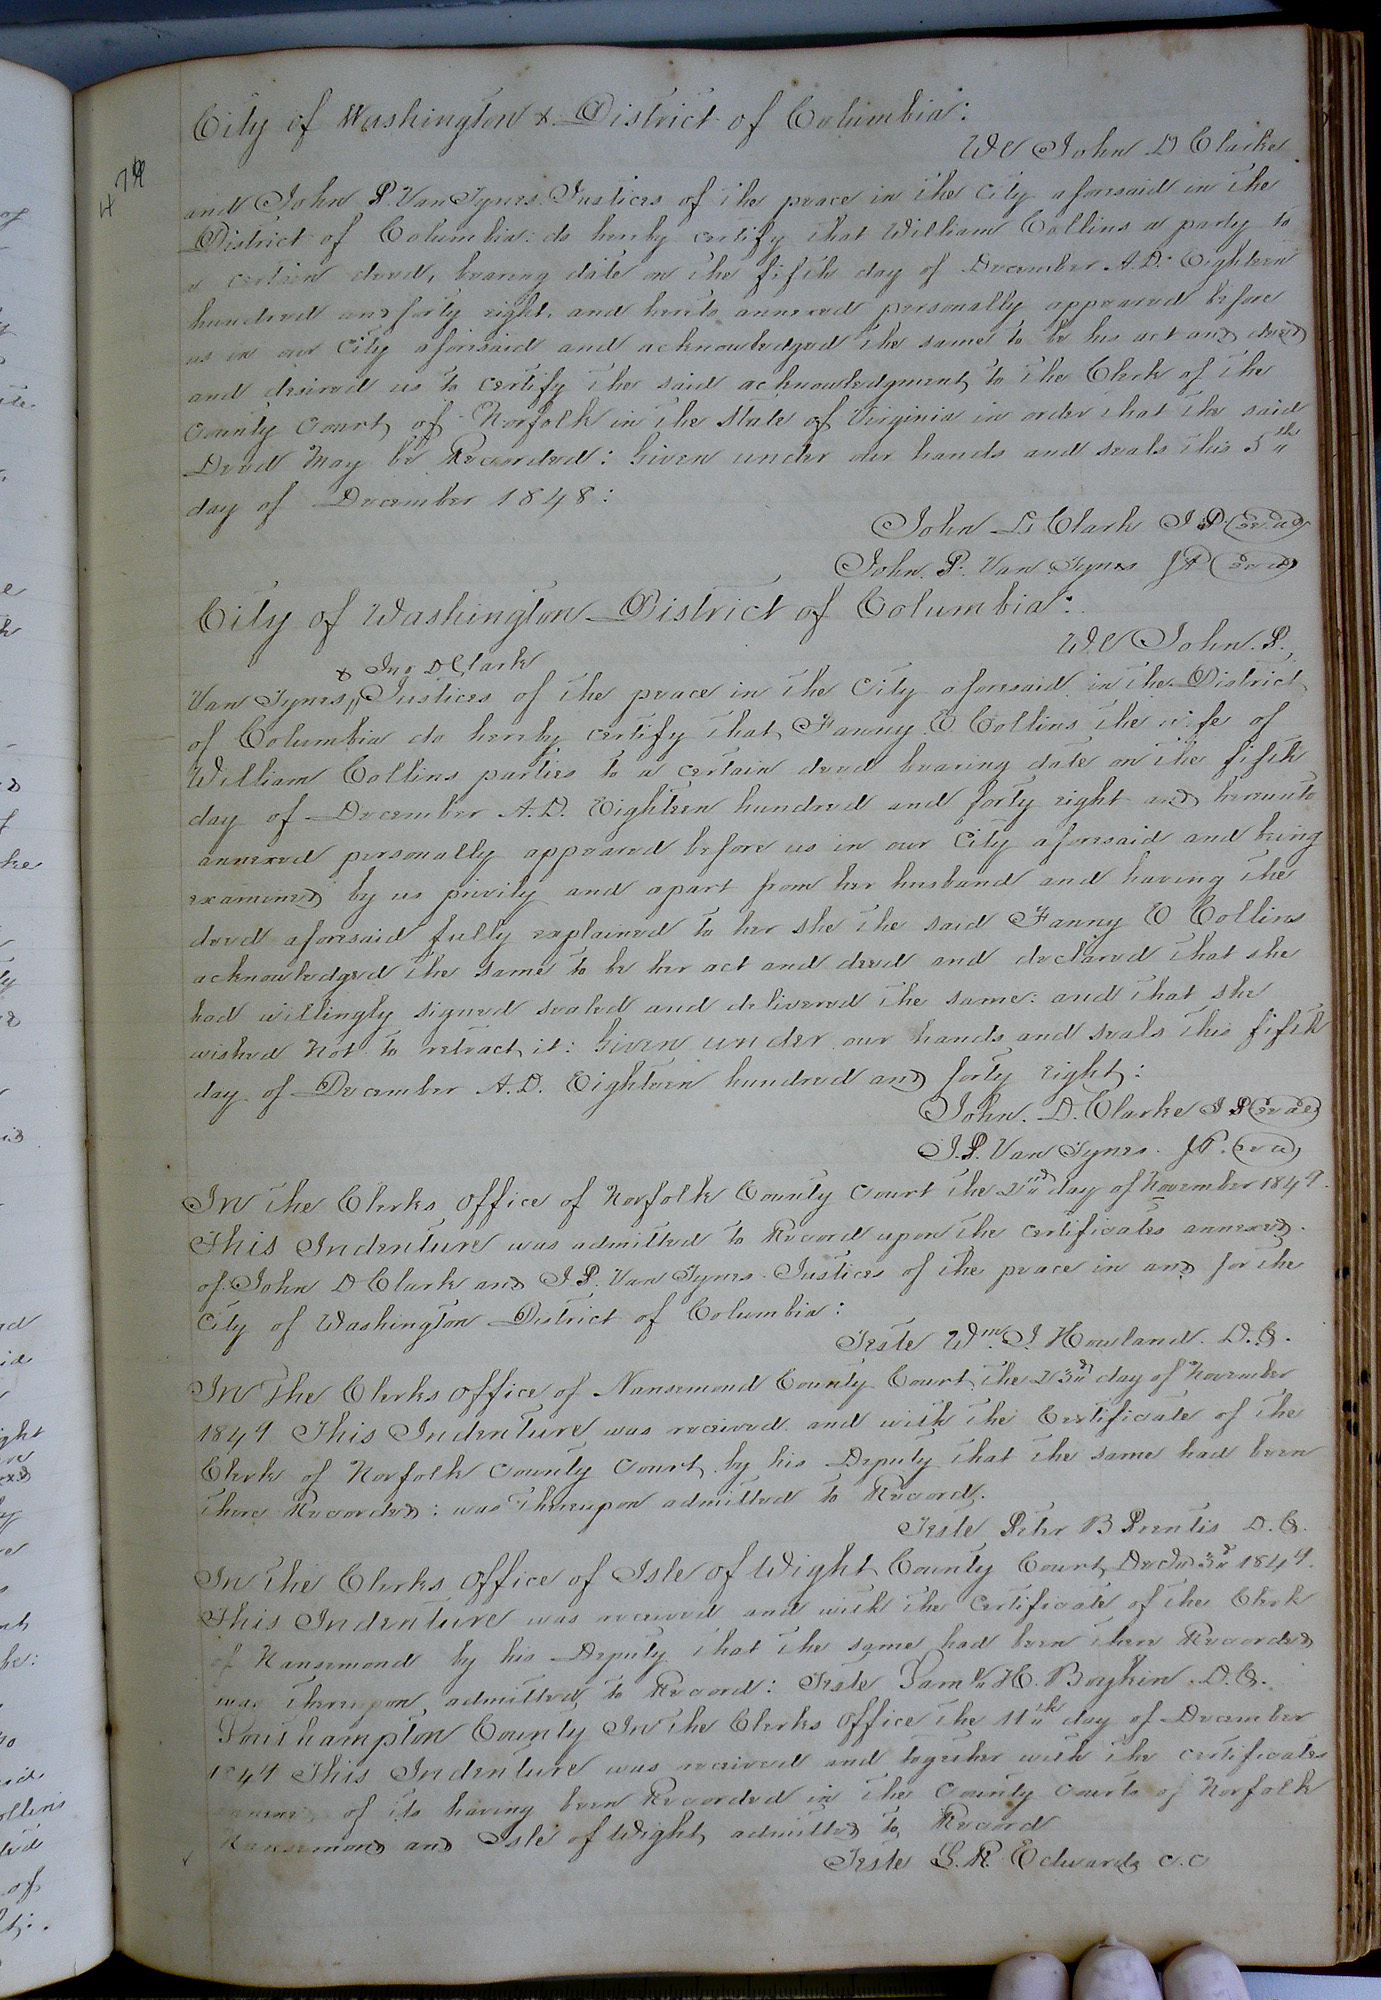 474
City of Washington & District of Columbia:
We John D Clarke
and John P. Van Tynes. Justices of the peace in the City aforesaid in the
District of Columbia: do hereby certify that William Collins a party to
a certain deed, bearing date on the fifth day of December A.D. Eighteen
hundred and forty eight. and hereto annexed personally appeared before
us in our City aforesaid and acknowledged the same to be his act and deed
and desired us to certify the said acknowledgment, to the Clerk of the
County Court, of Norfolk in the State of Virginia in order that the said
Deed May be Recorded: Given under our hands and seals this 5th
day of December 1848:
John D Clark J P. (Seal)
John. P. Van Tynes JP (Seal)
City of Washington District of Columbia:
We John. P.
& Jno D Clark
Van Tynes, Justices of the peace in the City aforesaid in the District
of Columbia do hereby certify that, Fanny E Collins the wife of
William Collins parties to a certain deed bearing date on the fifth
day of December A.D. Eighteen hundred and forty eight and hereunto
annexed personally appeared before us in our City aforesaid and being
examined by us privily and apart from her husband and having the
deed aforesaid fully explained to her she the said Fanny E Collins
acknowledged the same to be her act and deed and declared that she
had willingly signed sealed and delivered the same: and that she
wished Not to retract, it: Given under our hands and seals this fifth
day of December A.D. Eighteen hundred and forty eight:
John. D. Clarke J P (Seal)
J.P. Van Tynes. JP. (Seal)
In the Clerks Office of Norfolk County Court the 2nd day of November 1849.
This Indenture was admitted to Record upon the certificates annexed.
of John D Clark and J P. Van Tynes. Justices of the peace in and for the
City of Washington District of Columbia:
Teste Wm. J Howland. D.C.
In The Clerks Office of Nansemond County Court, the 23d day of November
1849 This Indenture was received and with the Certificate of the
Clerk of Norfolk County Court, by his Deputy that the same had been
there Recorded: was thereupon admitted to Record.
Teste Peter B Prentis D.C.
In the Clerks Office of Isle of Wight, County Court, Decr 3d 1849.
This Indenture was received and with the Certificate of the Clerk
of Nansemond by his Deputy that the same had been there Recorded
was thereupon admitted, to Record: Teste Saml H. Boykin. D.C.
Southampton County In the Clerks Office the 11th day of December
1849 This Indenture was received and together with the certificates
of its having been Recorded in the County Courts of Norfolk
Nansemond and Isle of Wight, admitted to, Record
Teste L. R. Edwards C.C